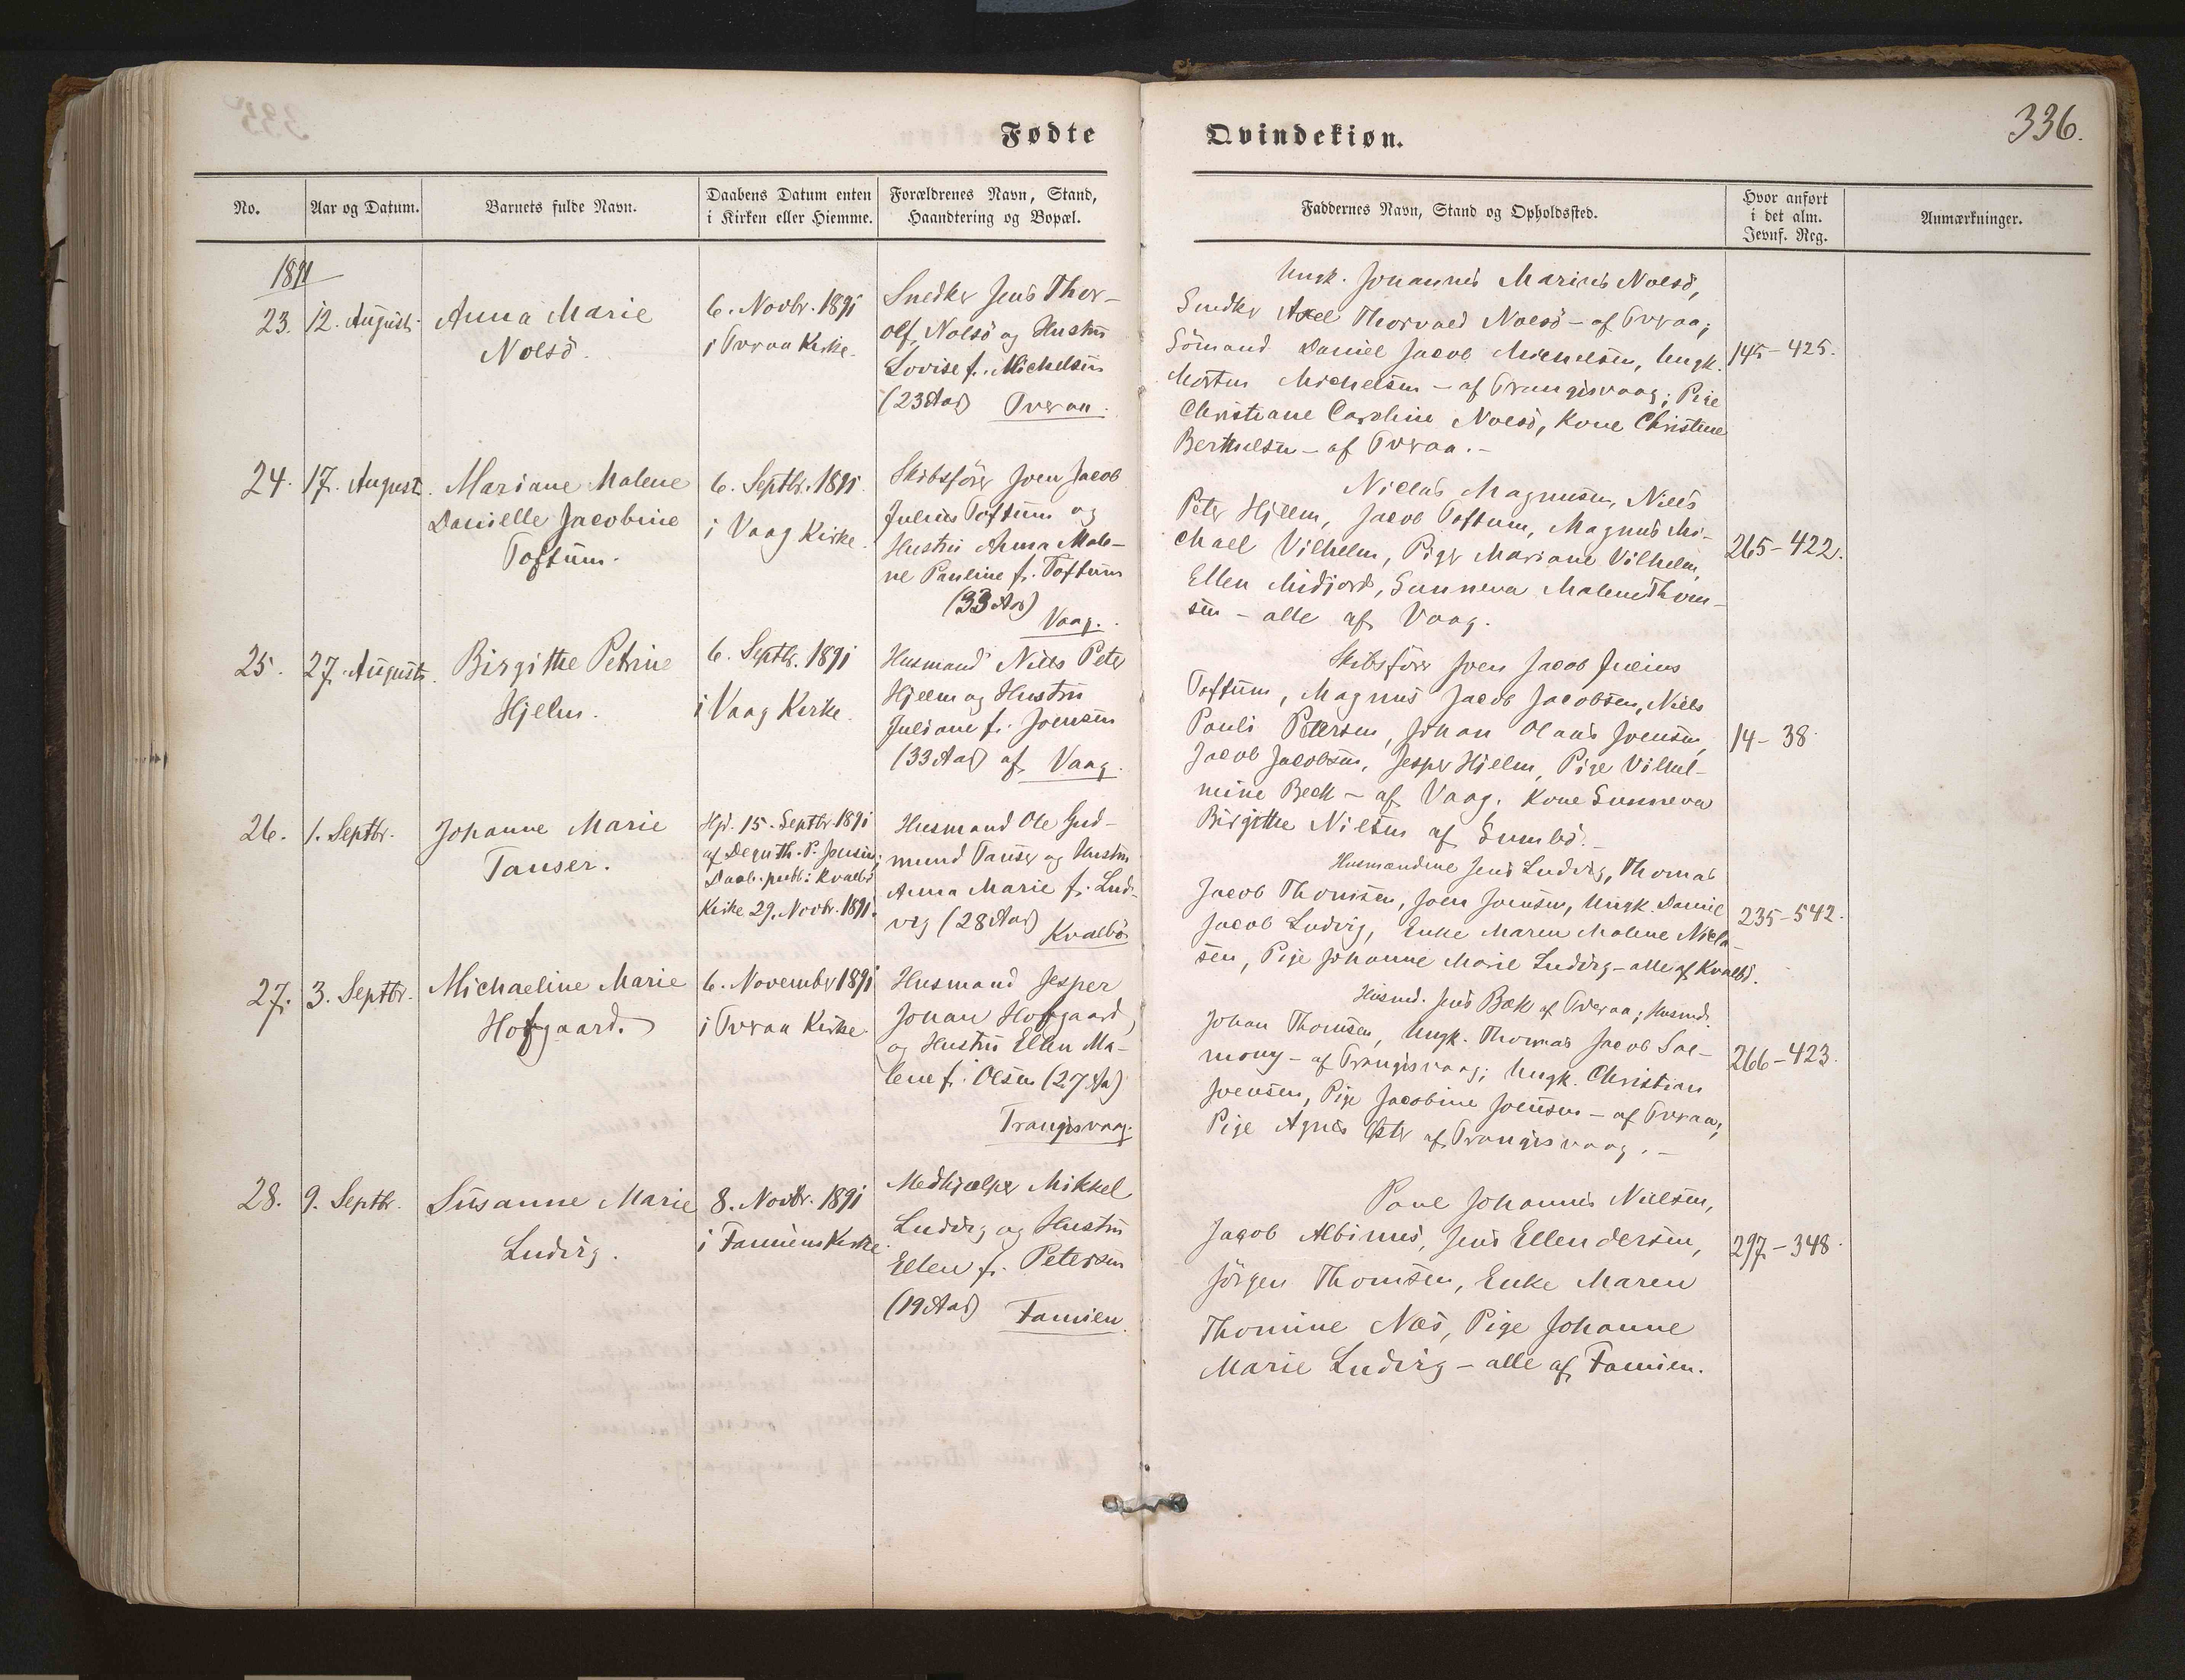 Fødte
Qvindekiøn.
336.
No.
Aar og Datum.
Barnets fulde Navn.
Daabens Datum enten
i Kirken eller Hiemme.
Forældrenes Navn, Stand,
Haandtering og Bopæl.
Faddernes Navn, Stand og Opholdssted.
Hvor anført
i det alm.
Jevnf. Reg.
Anmærkninger.
1891
23.
12. August.
Anna Marie
Nolsö.
6. Novbr. 1891
i Tveraa Kirke.
Snedker Jens Thor-
olf Nolsö og Hustru
Lovise f. Michelsen
(23 Aar) Tveraa.
Ungk. Johannes Marius Nolsö,
Snedker Axel Thorvald Nolsö - af Tveraa;
Sömand Daniel Jacob Michelsen, Ungk.
Morten Michelsen - af Trangisvaag; Pige
Christiane Caroline Nolsö, Kone Christine
Berthelsen - af Tveraa. -
145-425.
24.
17. August.
Mariane Malene
Danielle Jacobine
Toftum.
6. Septbr. 1891
i Vaag Kirke.
Skibsförer Joen Jacob
Julius Toftum og
Hustru Anna Male-
ne Pauline f. Toftum
(33 Aar)
Vaag.
Niclas Magnusen, Niels
Peter Hjelm, Jacob Toftum, Magnus Mi-
chael Vilhelm, Piger Mariane Vilhelm,
Ellen Midjord, Sunneva Malene Thom-
sen - alle af Vaag.
265-422.
25.
27. August.
Birgithe Petrine
Hjelm.
6. Septbr. 1891
i Vaag Kirke.
Husmand Niels Peter
Hjelm og Hustru
Juliane f. Joensen
(33 Aar) af Vaag.
Skibsförer Joen Jacob Julius
Toftum, Magnus Jacob Jacobsen, Niels
Pauli Petersen, Johan Olaus Joensen,
Jacob Jacobsen, Jesper Hjelm, Pige Vilhel-
mine Beck - af Vaag. Kone Sunneva
Birgithe Nielsen af Sumbö. -
14-38.
26.
1. Septbr.
Johanne Marie
Tauser.
Hjd. 15. Septbr 1891
af Degn Th. P. Jensen;
Daab. publ. i Kvalbö
Kirke 29. Novbr. 1891.
Husmand Ole Gud-
mund Tauser og Hustru
Anna Marie f. Lud-
vig (28 Aar)
Kvalbö
Husmændene Jens Ludvig, Thomas
Jacob Thomsen, Joen Joensen, Ungk. Daniel
Jacob Ludvig, Enke Maren Malene Niela-
sen, Pige Johanne Marie Ludvig - alle af Kvalbö.
235-542.
27.
3. Septbr.
Michaeline Marie
Hofgaard.
6. November 1891
i Tveraa Kirke.
Husmand Jesper
Johan Hofgaard,
og Hustru Ellen Ma-
lene f. Olsen (27 Aa)
Trangisvaag.
Husmd. Jens Bæk af Tveraa; Husmd.
Johan Thomsen, Ungk. Thomas Jacob Sal-
mony - af Trangisvaag; Ungk. Christian
Joensen, Pige Jacobine Joensen - af Tveraa;
Pige Agnes Öster af Trangisvaag. -
266-423.
28.
9. Septbr.
Susanne Marie
Ludvig.
8. Novbr. 1891
i Famiens Kirke.
Medhjælper Mikkel
Ludvig og Hustru
Ellen f. Petersen
(19 Aar) Famien.
Poul Johannes Nielsen,
Jacob Albinus, Jens Ellendersen,
Jörgen Thomsen, Enke Maren
Thomine Næs, Pige Johanne
Marie Ludvig - alle af Famien.
297-348.